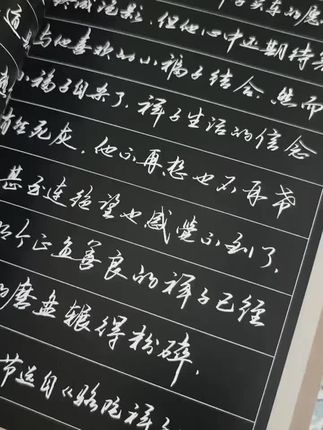 买车的愿
成泡影,但他心中正期待着
与他喜欢的小福子结合.然而
小福子自杀了.祥子生活的信念
死灰.他不再想也不再希
甚至连绝望也感觉不到了,
个正直善良的祥子已经
的磨盘辗得粉碎.
节选自《骆驼祥子